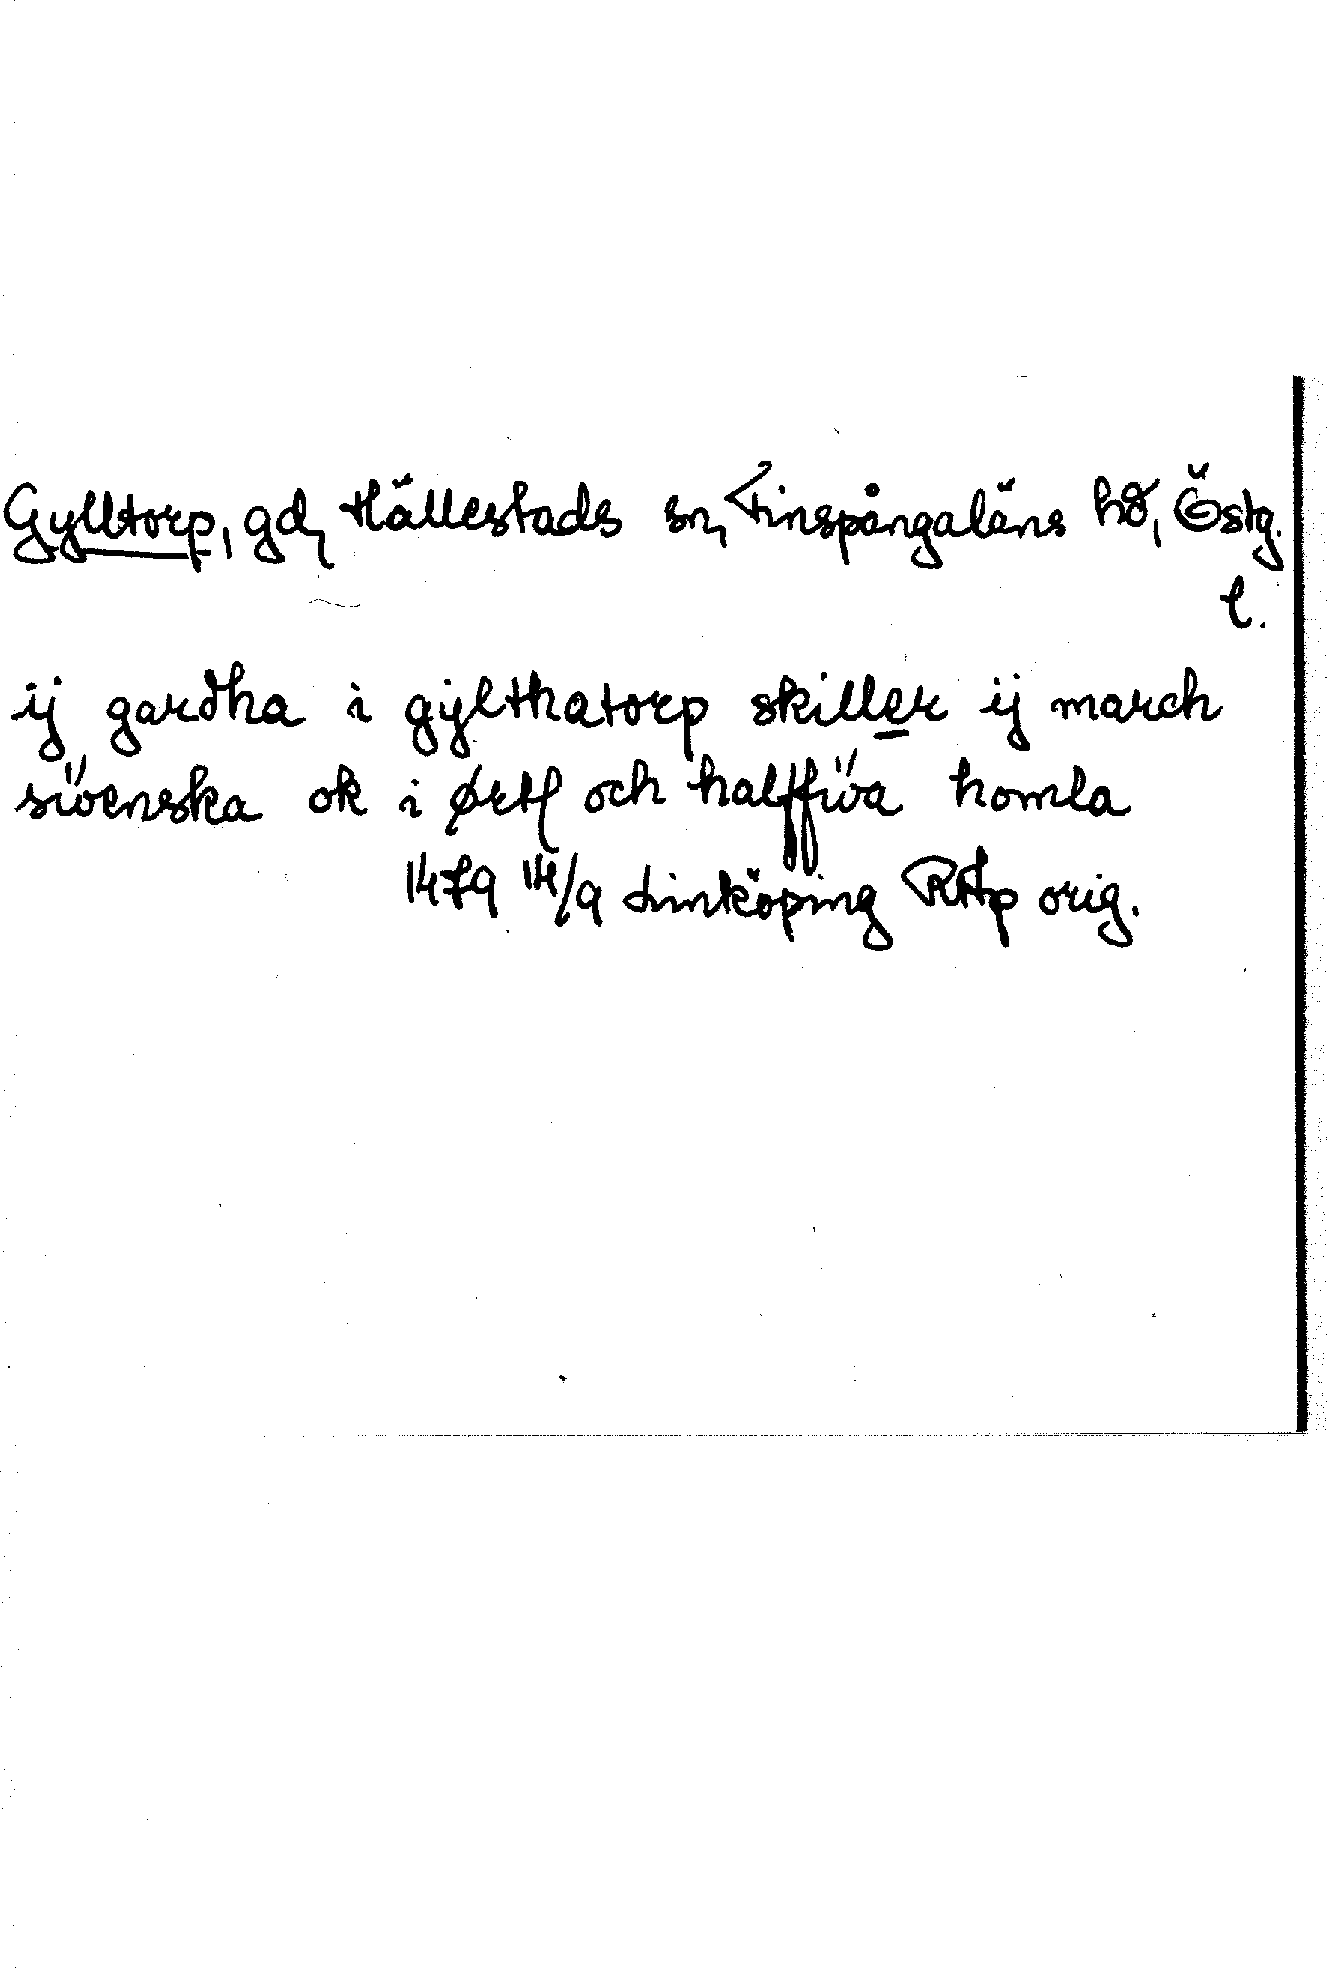 Gylltorp, gd, Hällestads sn, Finspångaläns hd, Östg.
l.
ij gardha i gÿlthatorp skiller ij march
swenska ok i ørtf och halffwa homla
1479 14/9 Linköping RAp orig.